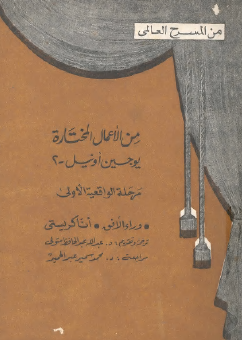 من المسرح العالمى
من الأعمال المختارة
يوجين أونيل - ٢
مرحلة الواقعية الأولى
• وراء الأفق • أنا كريستى
ترجمة وتقديم: د. عبدالله عبدالحافظ متولى
مراجعة: د. محمد سمير عبدالحميد